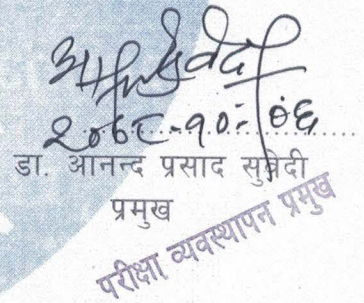 २०७८-१०-०६
डा. आनन्द प्रसाद सुवेदी
प्रमुख
परीक्षा व्यवस्थापन प्रमुख